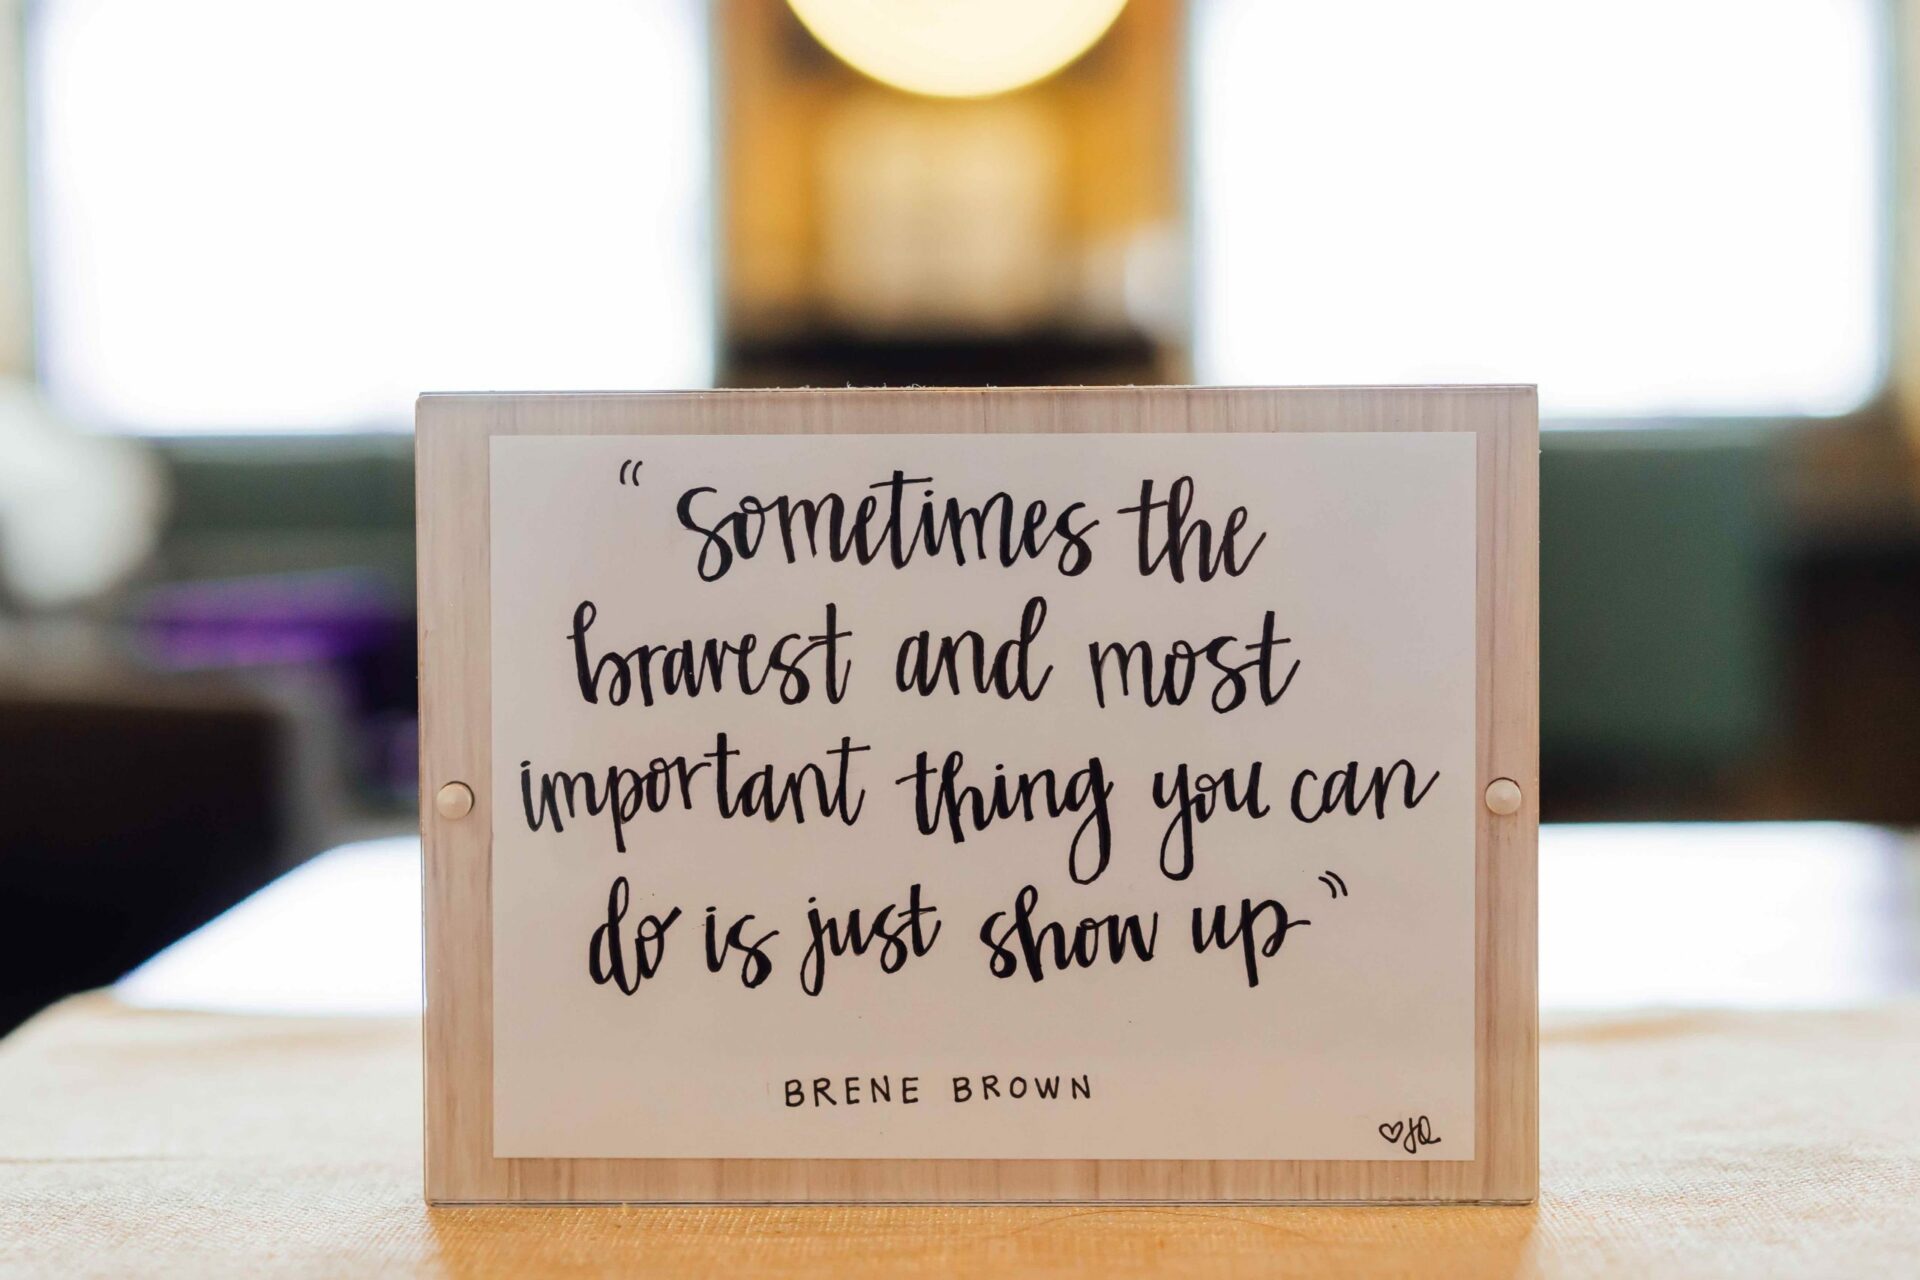 “Sometimes the
bravest and most
important thing you can
do is just show up”
BRENE BROWN